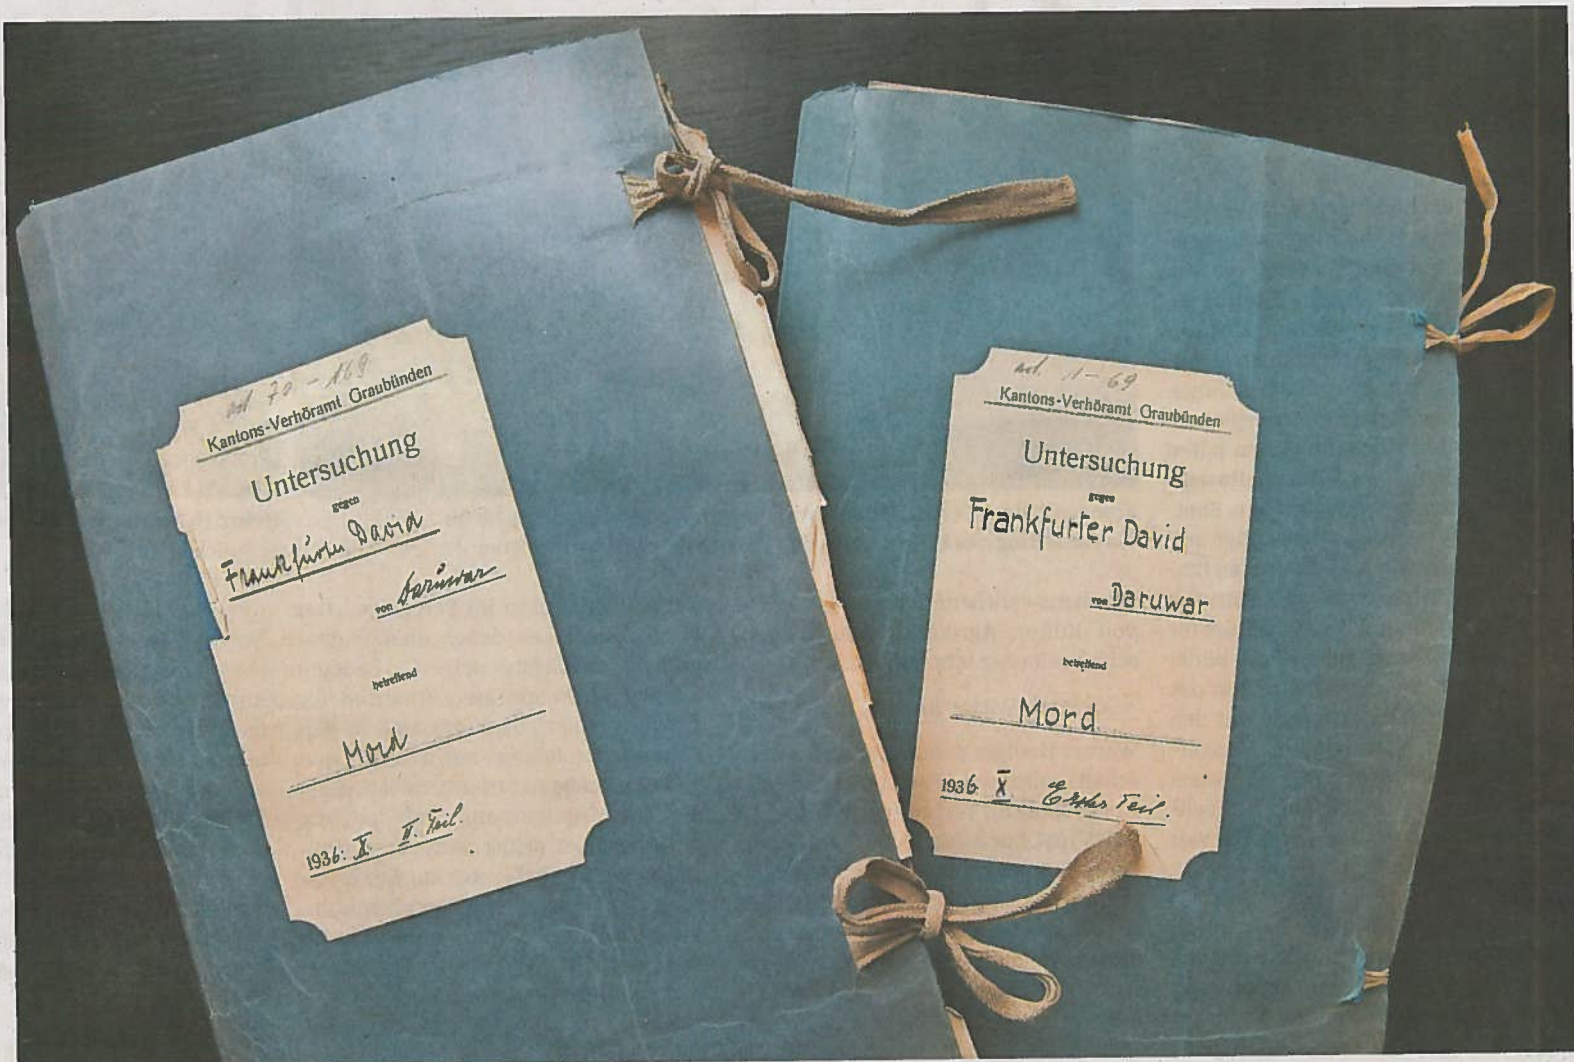 act 70 - 169
Kantons-Verhöramt Graubünden
Untersuchung
gegen
Frankfurter David
von Daruwar
betreffend
Mord
1936: X. II. Teil.
act. 1 - 69
Kantons-Verhöramt Graubünden
Untersuchung
gegen
Frankfurter David
von Daruwar
betreffend
Mord
1936 X Erster Teil.